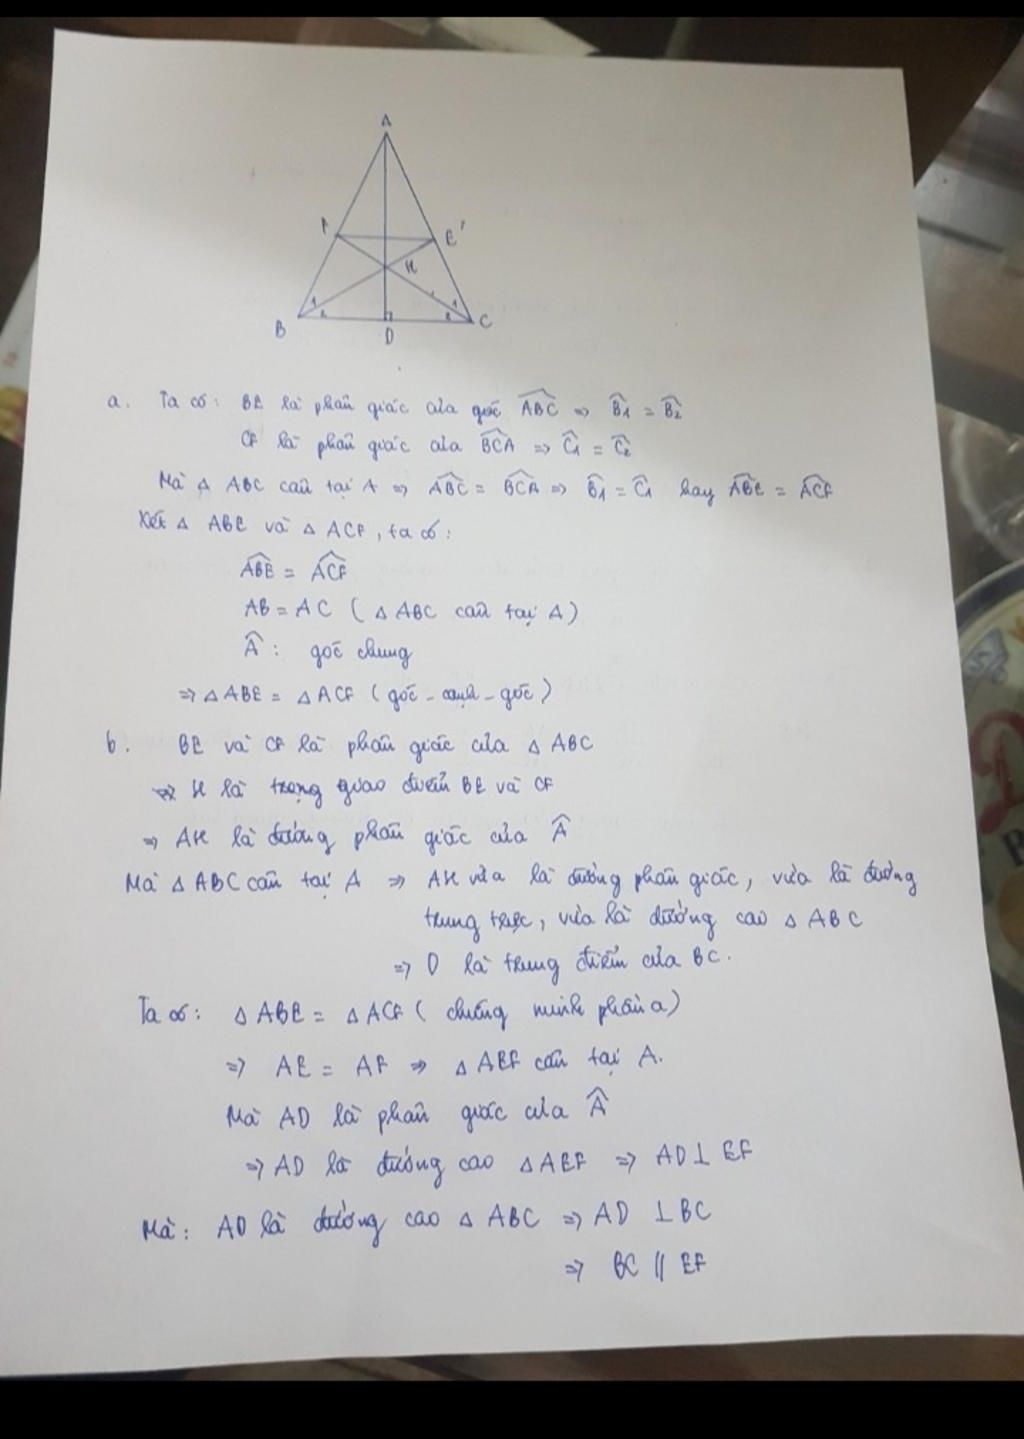 A
F
E'
H
1
2
1
2
B
D
C
a. Ta có: BE là phân giác của góc ABC => B1 = B2
CF là phân giác của BCA => C1 = C2
Mà △ ABC cân tại A => ABC = BCA => B1 = C1 hay ABE = ACF
Xét △ ABE và △ ACF, ta có:
ABE = ACF
AB = AC (△ ABC cân tại A)
A: góc chung
=> △ ABE = △ ACF (góc - cạnh - góc)
b. BE và CF là phân giác của △ ABC
=> H là trọng giao điểm BE và CF
=> AH là đường phân giác của A
Mà △ ABC cân tại A => AH vừa là đường phân giác, vừa là đường
trung trực, vừa là đường cao △ ABC
=> D là trung điểm của BC.
Ta có: △ ABE = △ ACF (chứng minh phần a)
=> AE = AF => △ AEF cân tại A.
Mà AD là phân giác của A
=> AD là đường cao △ AEF => AD ⊥ EF
Mà: AD là đường cao △ ABC => AD ⊥ BC
=> BC // EF